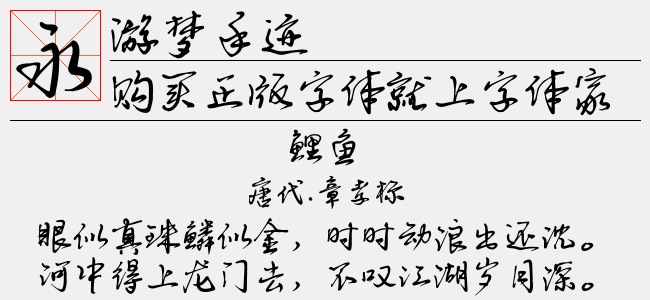 永
游梦手迹
购买正版字体就上字体家
鲤鱼
唐代.章孝标
眼似真珠鳞似金，时时动浪出还沈。
河中得上龙门去，不叹江湖岁月深。